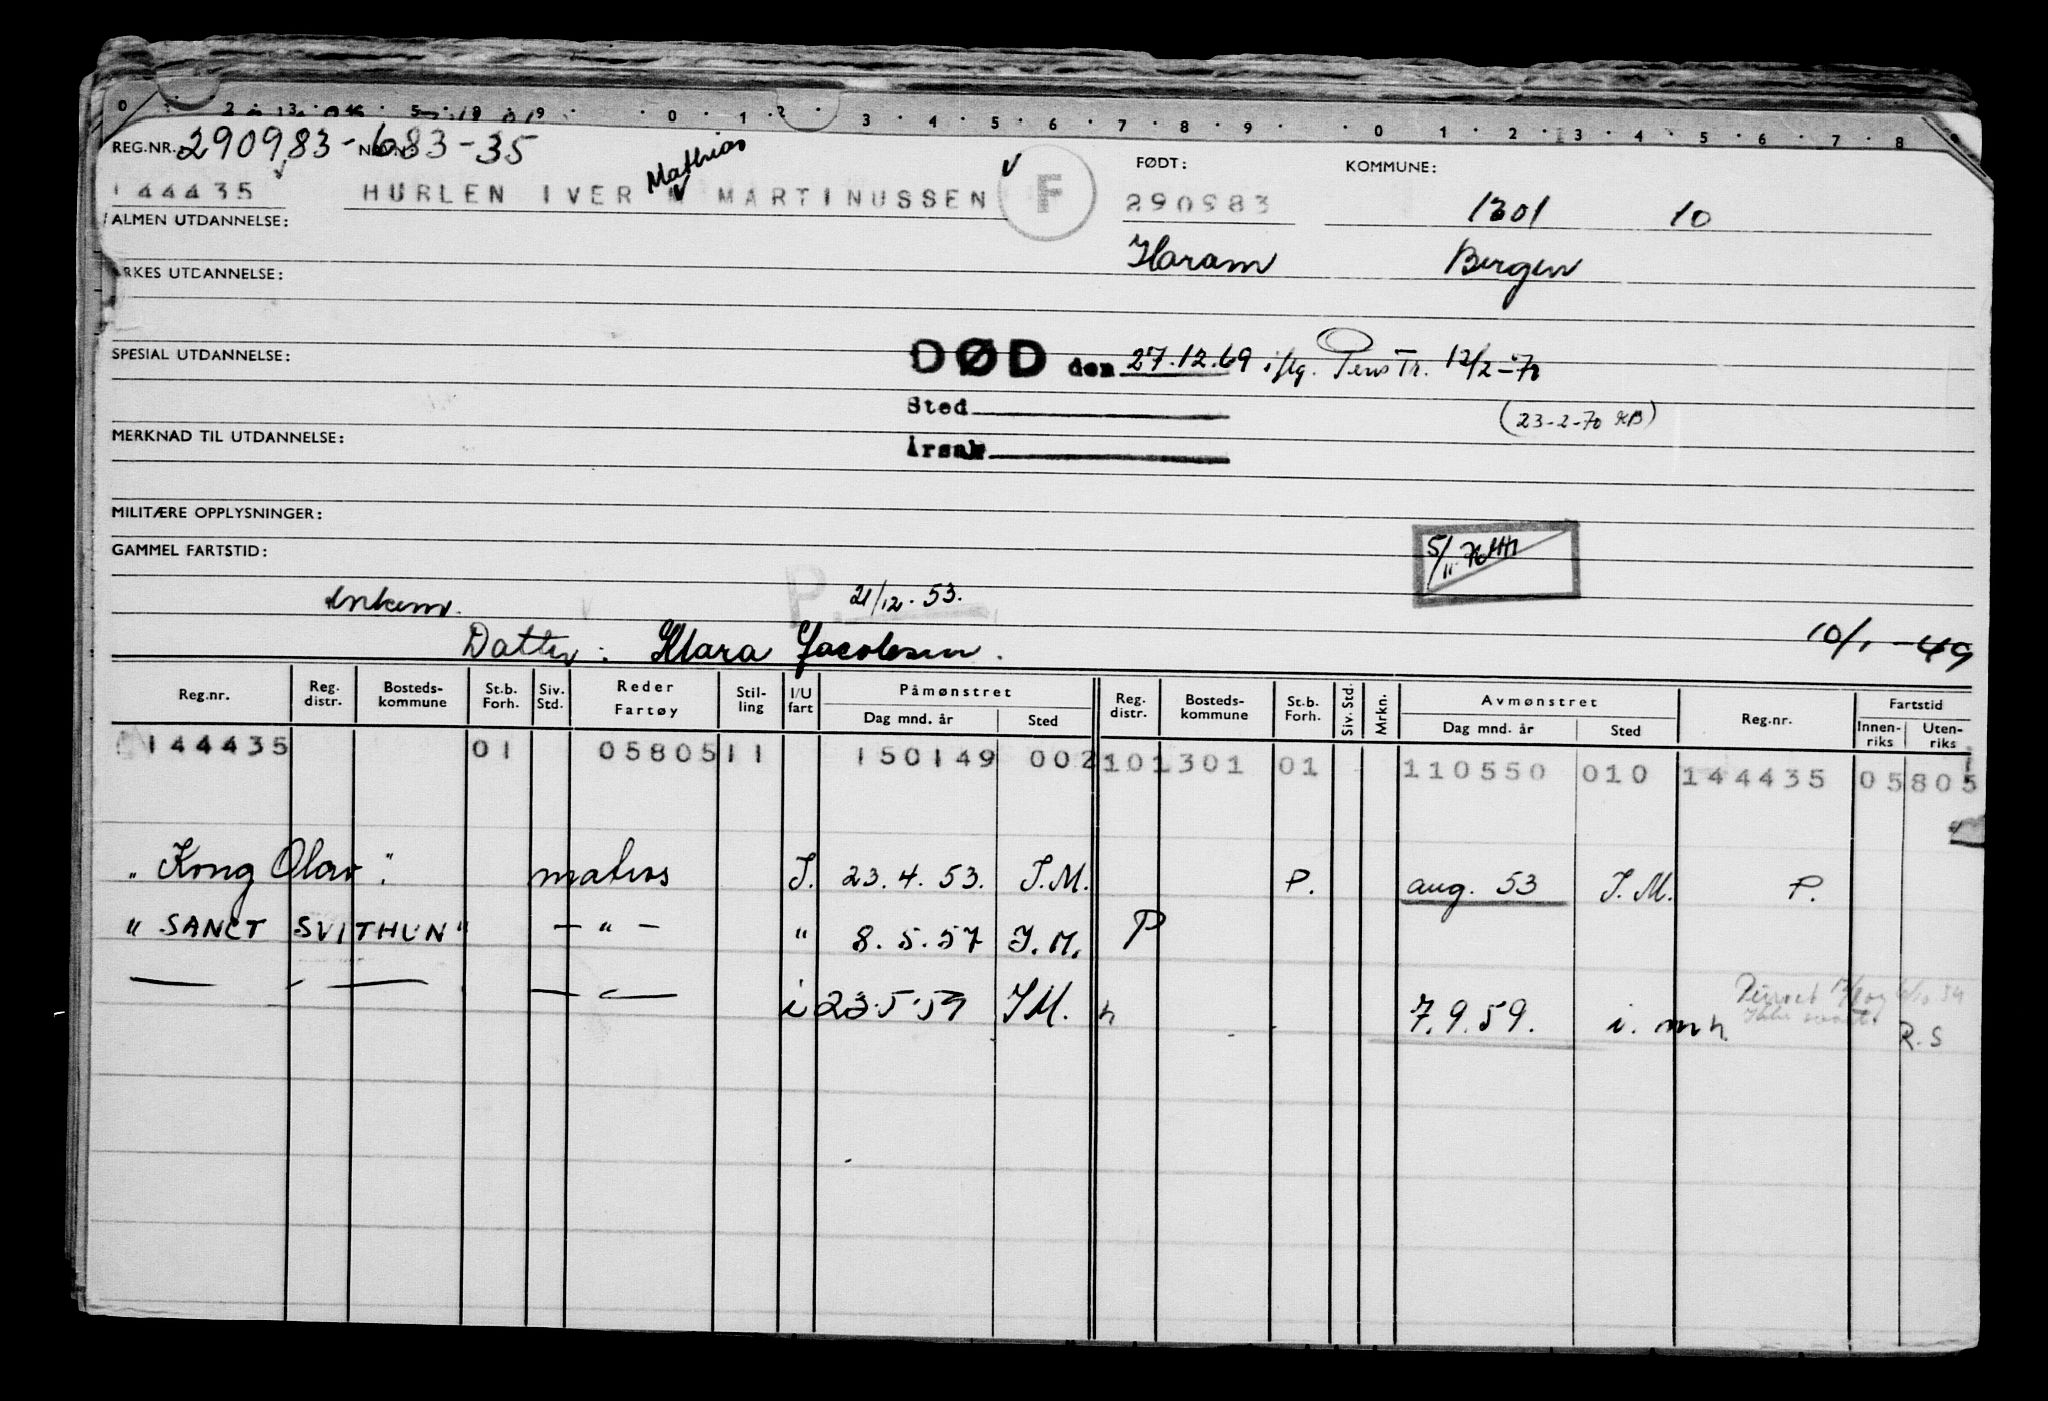 REG.NR. 290983-683-35
Mathias
FØDT: KOMMUNE:
144435 HURLEN IVER M MARTINUSSEN F 290983 1301 10
ALMEN UTDANNELSE:
Haram Bergen
YRKES UTDANNELSE:
SPESIAL UTDANNELSE:
DØD den 27.12.69 iflg. Pens Tr. 12/2-70
Sted
(23-2-70 KB)
MERKNAD TIL UTDANNELSE:
Årsak
MILITÆRE OPPLYSNINGER:
GAMMEL FARTSTID:
5/11
P. 21/12. 53.
Enkem.
Datter: Klara Jacobsen.
10/1-49
Reg.nr. Reg. distr. Bosteds- kommune St.b. Forh. Siv. Std. Reder Fartøy Stil- ling I/U fart Påmønstret Dag mnd. år Sted Reg. distr. Bosteds- kommune St.b. Forh. Siv. Std. Mrkn. Avmønstret Dag mnd. år Sted Reg.nr. Fartstid Innen- riks Uten- riks
144435 01 05805 11 150149 002 10 1301 01 110550 010 144435 05805
"Kong Olav" matros I. 23.4.53. I.M. P. aug. 53 I.M. P.
"SANCT SVITHUN" - " - " 8.5.57 I.M. P
i 23.5.59 IM. h 7.9.59. i. mh. R.S